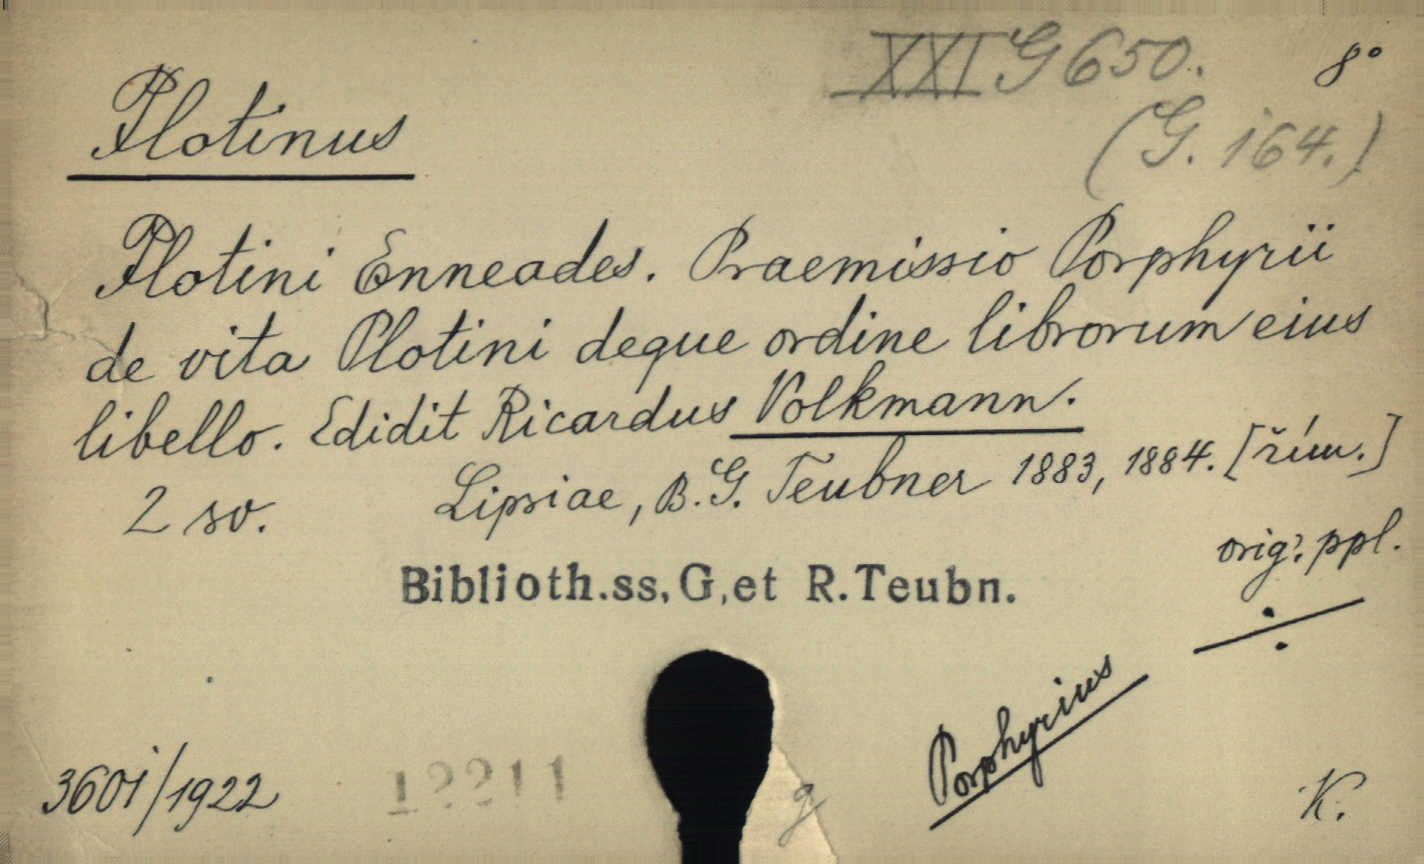 XXI G 650. 8°
(G. 164.)
Plotinus
Plotini Enneades. Praemissio Porphyrii
de vita Plotini deque ordine librorum eius
libello. Edidit Ricardus Volkmann.
2 sv. Lipsiae, B.G. Teubner 1883, 1884. [řím.]
orig. ppl.
Biblioth.ss,G,et R.Teubn.
÷
Porphyrius
3601/1922 12211
g
K.